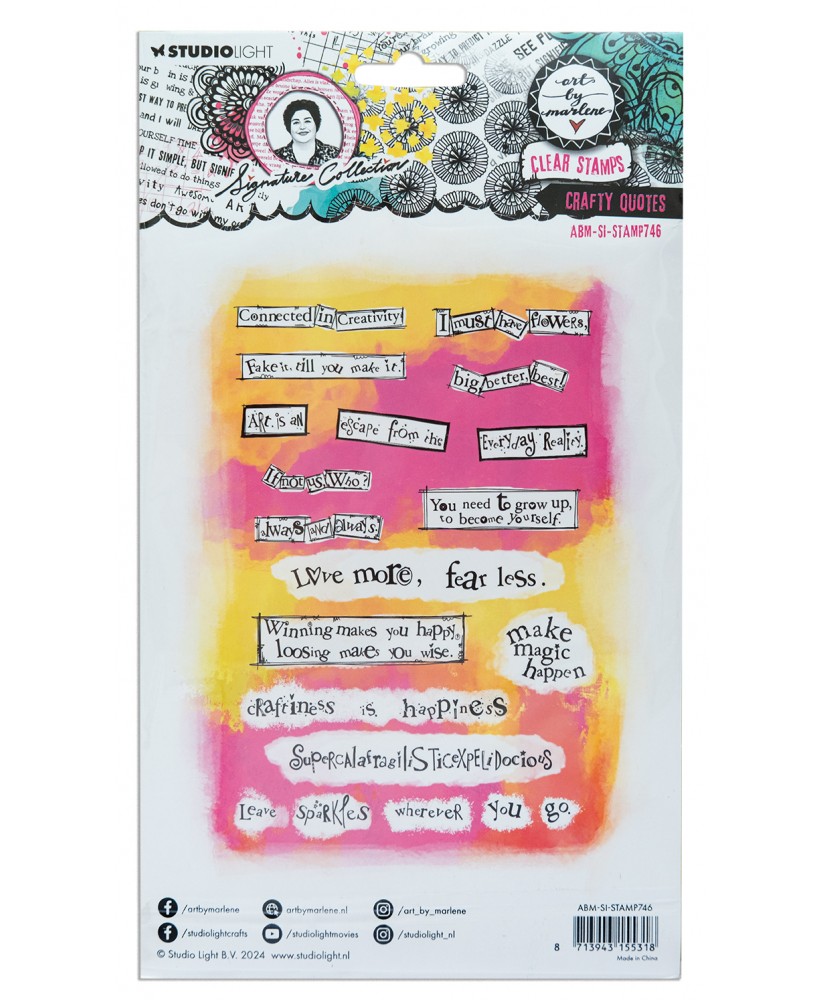 STUDIOLIGHT
growing
DAZZLE
SEE
WAY TO
and I will
OURSELF TIME
IT SIMPLE, BUT SIGNIF
llowed to do things
vity Awesom
es don't go wi
my
Signature Collection
art
by
marlene
CLEAR STAMPS
CRAFTY QUOTES
ABM-SI-STAMP746
Connected in Creativity
I must have flowers,
Fake it, till you make it.
big, better, best!
ART. is AN
escape from the
Everyday Reality.
If not us, Who?
You need to grow up,
to become yourself.
always and always.
Love more, fear less.
Winning makes you happy,
loosing makes you wise.
make
magic
happen
craftiness is happiness
Supercalafragilisticexpelidocious
Leave sparkles wherever you go.
/artbymarlene
artbymarlene.nl
/art_by_marlene
/studiolightcrafts
/studiolightmovies
/studiolight_nl
© Studio Light B.V. 2024 www.studiolight.nl
ABM-SI-STAMP746
8 713943 155318
Made in China